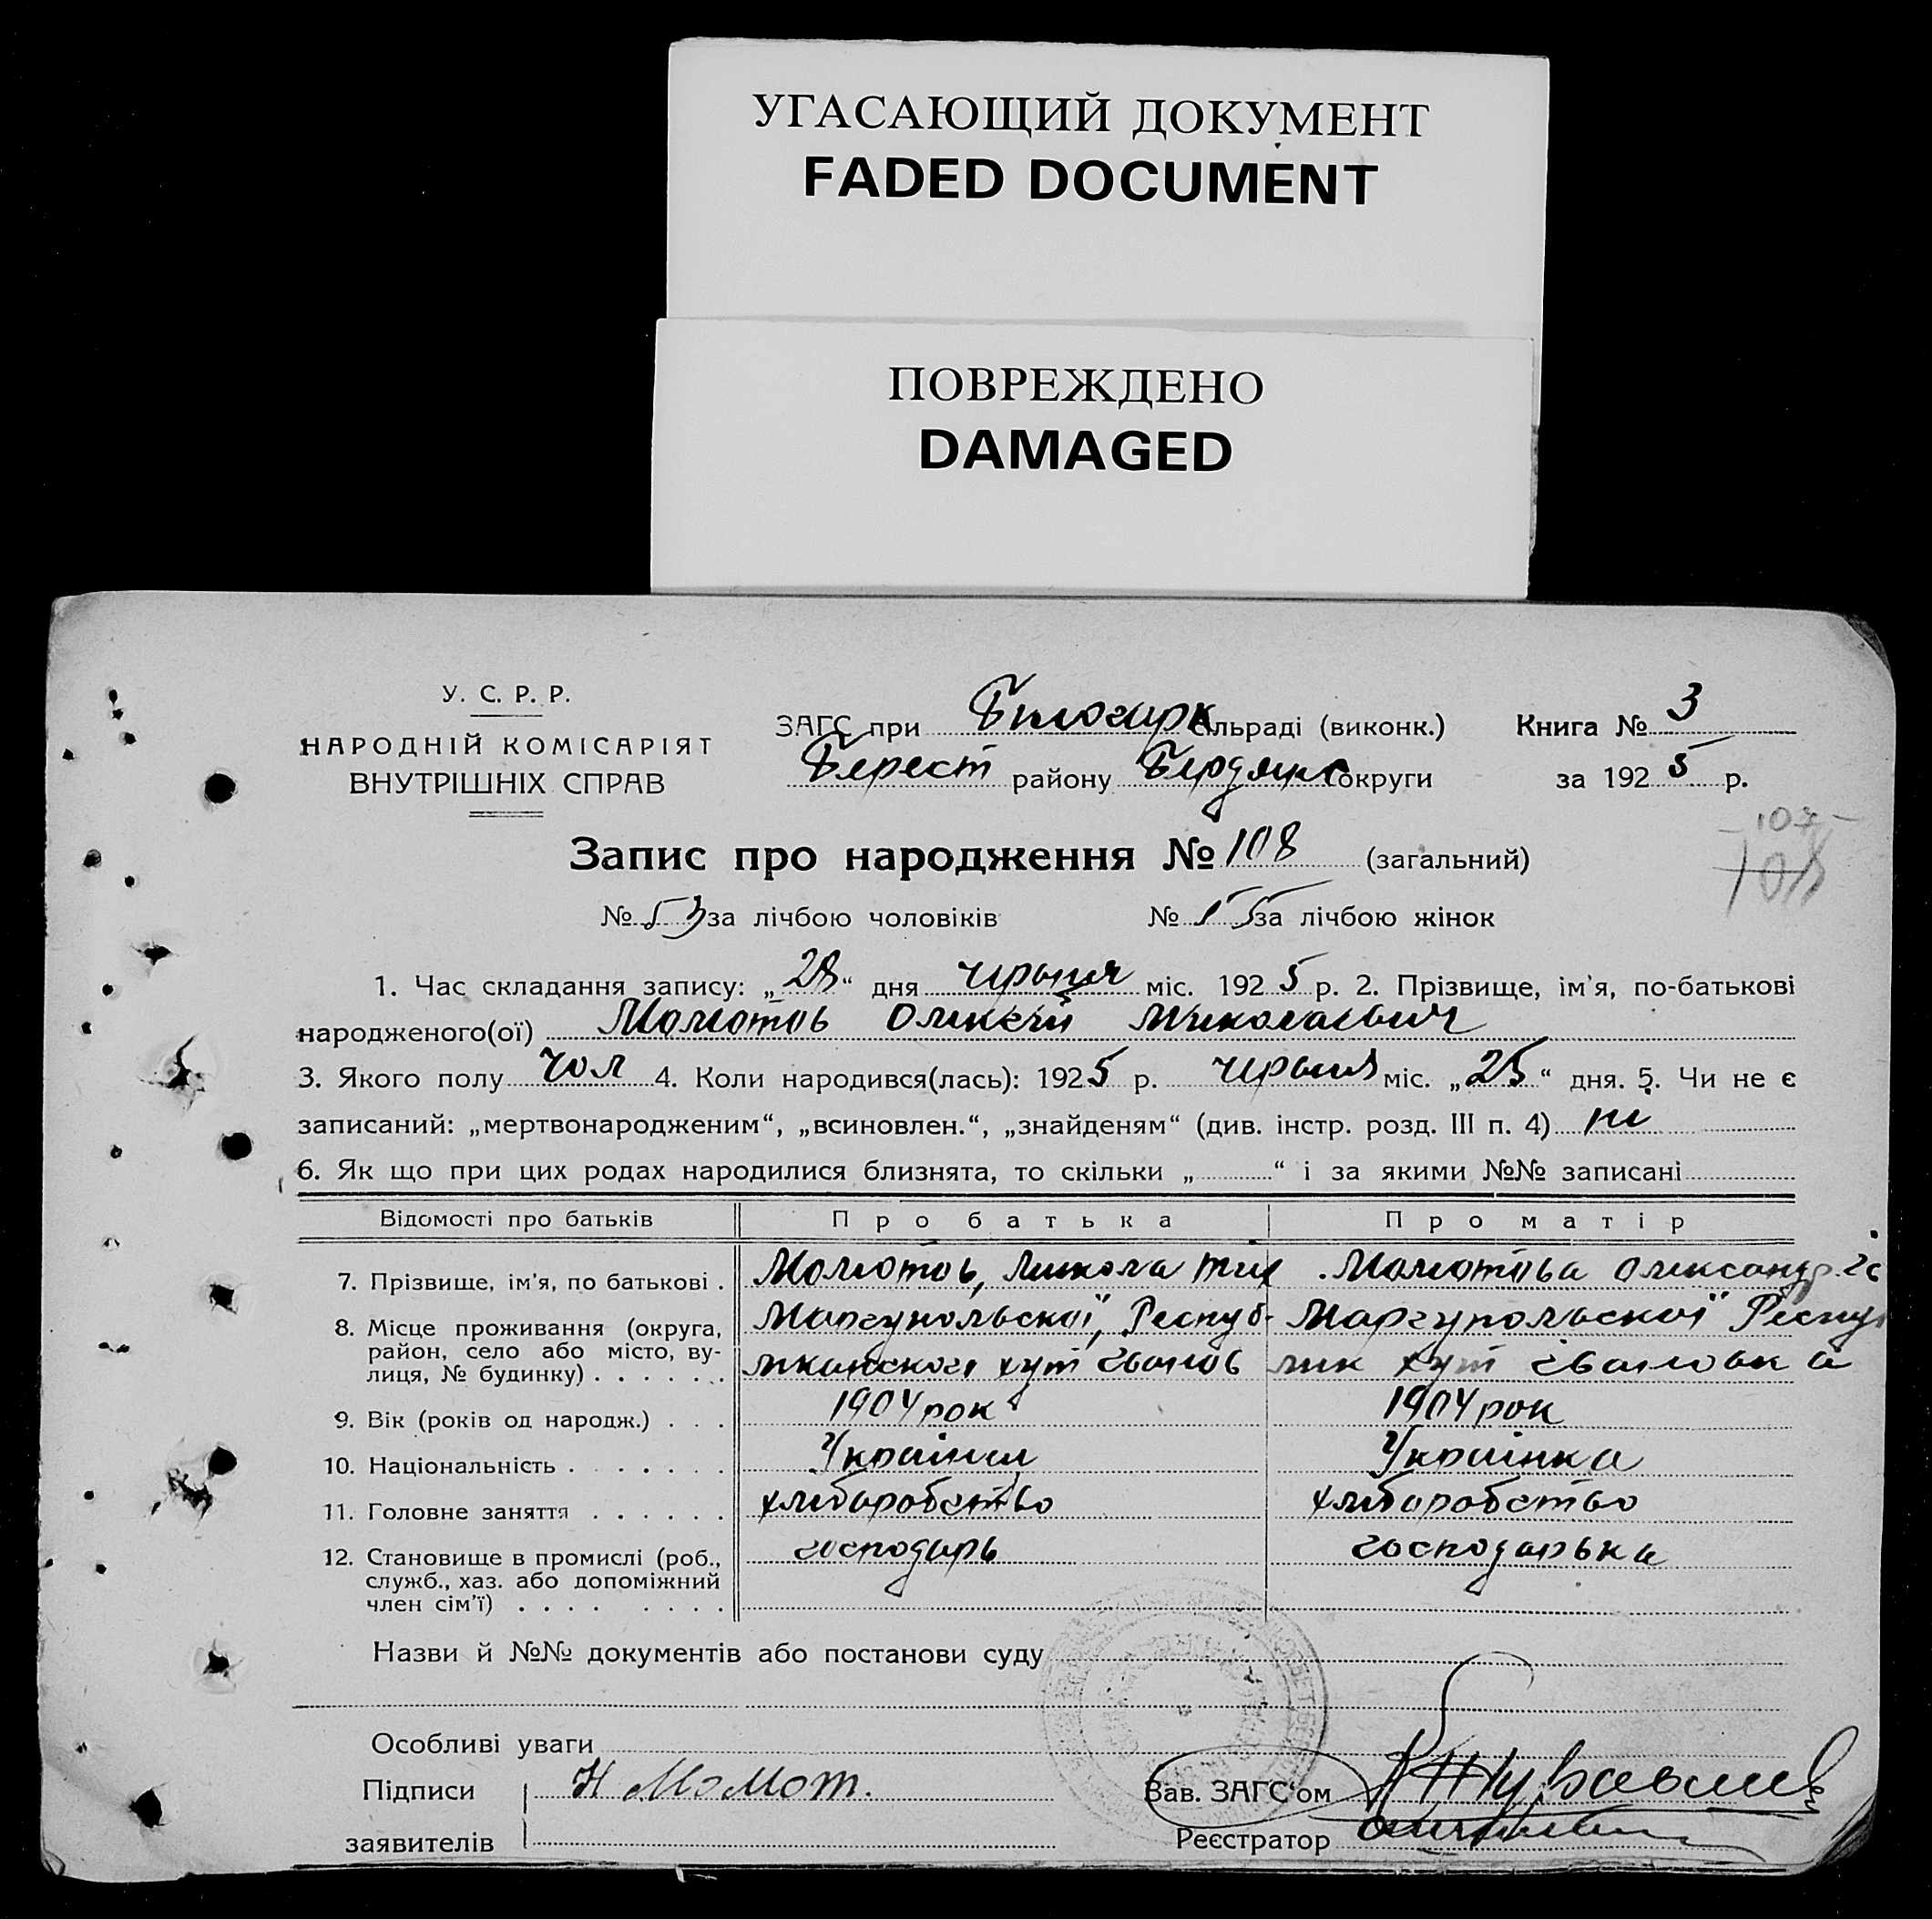 УГАСАЮЩИЙ ДОКУМЕНТ
FADED DOCUMENT
ПОВРЕЖДЕНО
DAMAGED
У. С. Р. Р.
НАРОДНІЙ КОМІСАРІЯТ
ВНУТРІШНІХ СПРАВ
ЗАГС при Білоцирк сільраді (виконк.) Книга № 3
Берест району Бердянс округи за 1925 р.
107
108
Запис про народження № 108 (загальний)
№ 53 за лічбою чоловіків № 55 за лічбою жінок
1. Час складання запису: „28“ дня червня міс. 1925 р. 2. Прізвище, ім'я, по-батькові
народженого(ої) Момотов Олексій Миколаевич
3. Якого полу чол 4. Коли народився(лась): 1925 р. червня міс. „25“ дня. 5. Чи не є
записаний: „мертвонародженим“, „всиновлен.“, „знайденям“ (див. інстр. розд. III п. 4) ні
6. Як що при цих родах народилися близнята, то скільки „ “ і за якими №№ записані
Відомості про батьків Про батька Про матір
7. Прізвище, ім'я, по батькові . Момотов, Микола Тих Момотова Олександр.
8. Місце проживання (округа, район, село або місто, вулиця, № будинку) . . . . . . Маргупольської, Респуб- Маргупольської Респуб
ликанского хут Івано лик хут
9. Вік (років од народж.) . . . 1904 рок 1904 рок
10. Національність . . . . . . . Украінец Украінка
11. Головне заняття . . . . . . хлиборобство хлиборобство
12. Становище в промислі (роб., служб., хаз. або допоміжний член сім'ї) . . . . . . . . господарь господарька
Назви й №№ документів або постанови суду
Особливі уваги
Підписи Н Момот.
Вав. ЗАГС'ом
заявителів
Реєстратор